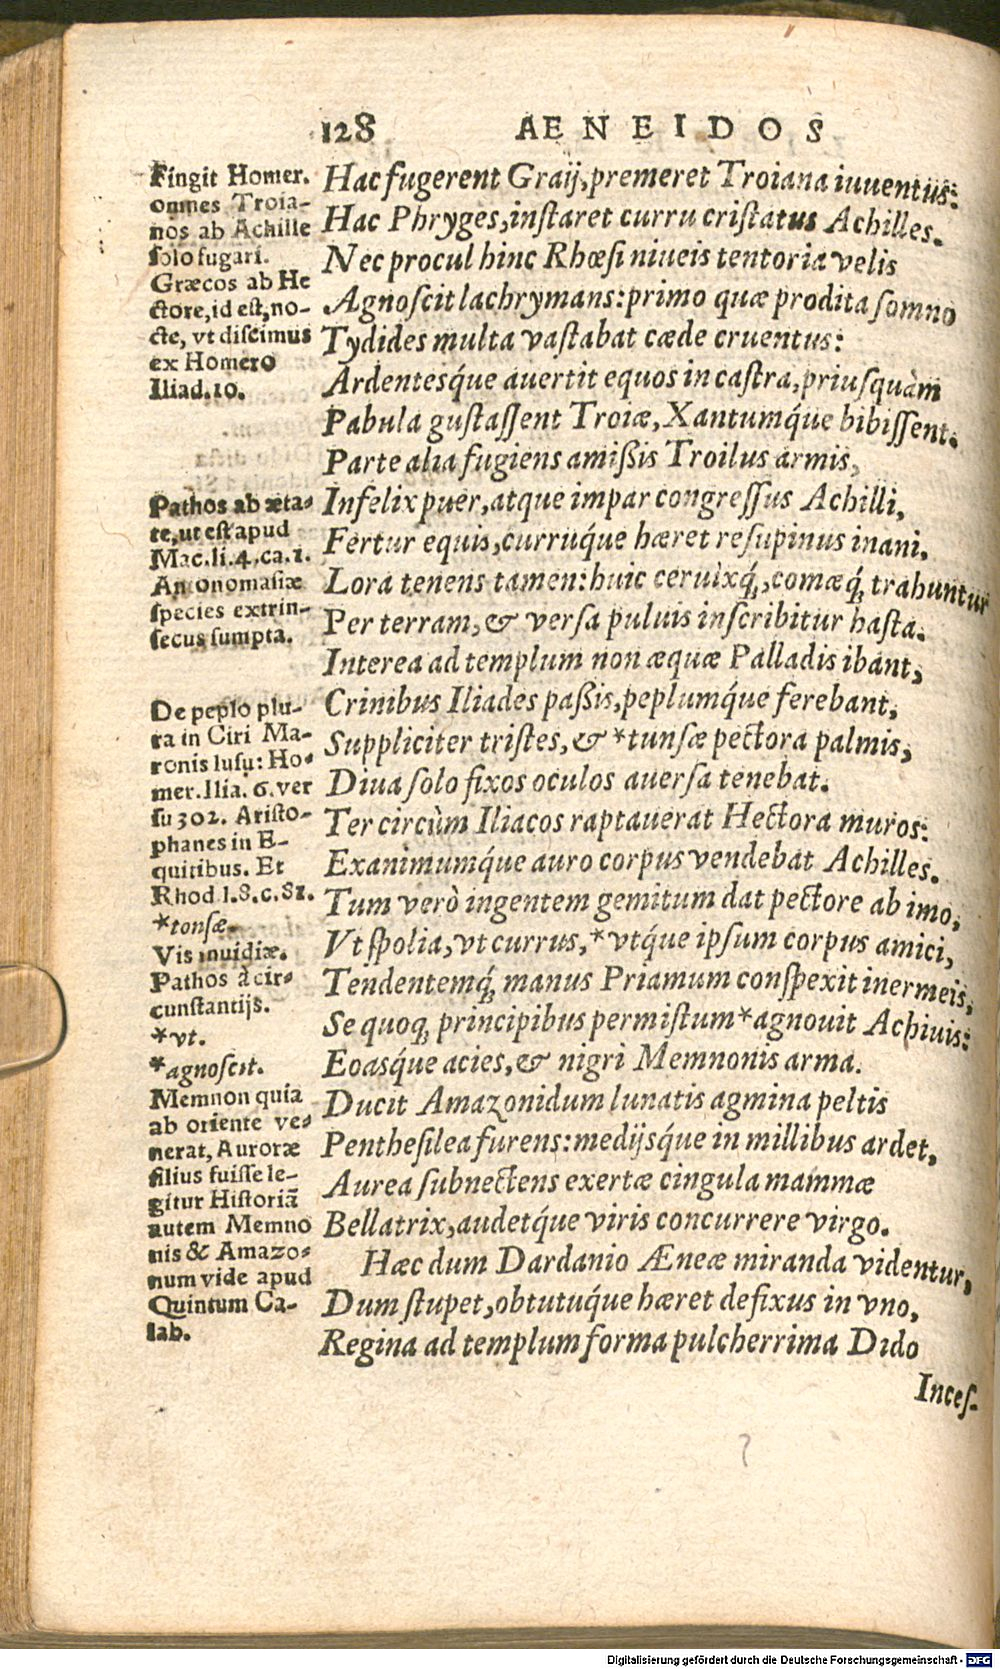 128 AENEIDOS
Fingit Homer.
omnes Troia-
nos ab Achille
solo fugari.
Græcos ab He
ctore, id est, no-
cte, vt discimus
ex Homero
Iliad.10.
Pathos ab æta-
te, ut est apud
Mac.li.4.ca.1.
Antonomasiæ
species extrin-
secus sumpta.
De peplo plu-
ra in Ciri Ma-
ronis lusu: Ho-
mer. Ilia. 6. ver
su 302. Aristo-
phanes in E-
quitibus. Et
Rhod l.8.c.81.
*tonsæ.
Vis inuidiæ.
Pathos à cir-
cunstantijs.
*vt.
*agnoscit.
Memnon quia
ab oriente ve-
nerat, Auroræ
filius fuisse le-
gitur Historiã
autem Memno
nis & Amazo-
num vide apud
Quintum Ca-
lab.
Hac fugerent Graij, premeret Troiana iuuentus:
Hac Phryges, instaret curru cristatus Achilles.
Nec procul hinc Rhœsi niueis tentoria velis
Agnoscit lachrymans: primo quæ prodita somno
Tydides multa vastabat cæde cruentus:
Ardentesq́ue auertit equos in castra, priusquàm
Pabula gustassent Troiæ, Xantumq́ue bibissent.
Parte alia fugiens amißis Troilus armis,
Infelix puer, atque impar congressus Achilli,
Fertur equis, curruq́ue hæret resupinus inani,
Lora tenens tamen: huic ceruìxq́;, comæq́; trahuntur
Per terram, & versa puluis inscribitur hasta.
Interea ad templum non æquæ Palladis ibant,
Crinibus Iliades paßis, peplumq́ue ferebant,
Suppliciter tristes, & *tunsæ pectora palmis,
Diua solo fixos oculos auersa tenebat.
Ter circùm Iliacos raptauerat Hectora muros:
Exanimumq́ue auro corpus vendebat Achilles.
Tum verò ingentem gemitum dat pectore ab imo,
Vt spolia, vt currus, *vtq́ue ipsum corpus amici,
Tendentemq́; manus Priamum conspexit inermeis,
Se quoq; principibus permistum *agnouit Achiuis:
Eoasq́ue acies, & nigri Memnonis arma.
Ducit Amazonidum lunatis agmina peltis
Penthesilea furens: medijsq́ue in millibus ardet,
Aurea subnectens exertæ cingula mammæ
Bellatrix, audetq́ue viris concurrere virgo.
Hæc dum Dardanio Æneæ miranda videntur,
Dum stupet, obtutuq́ue hæret defixus in vno,
Regina ad templum forma pulcherrima Dido
Inces-
Digitalisierung gefördert durch die Deutsche Forschungsgemeinschaft - DFG